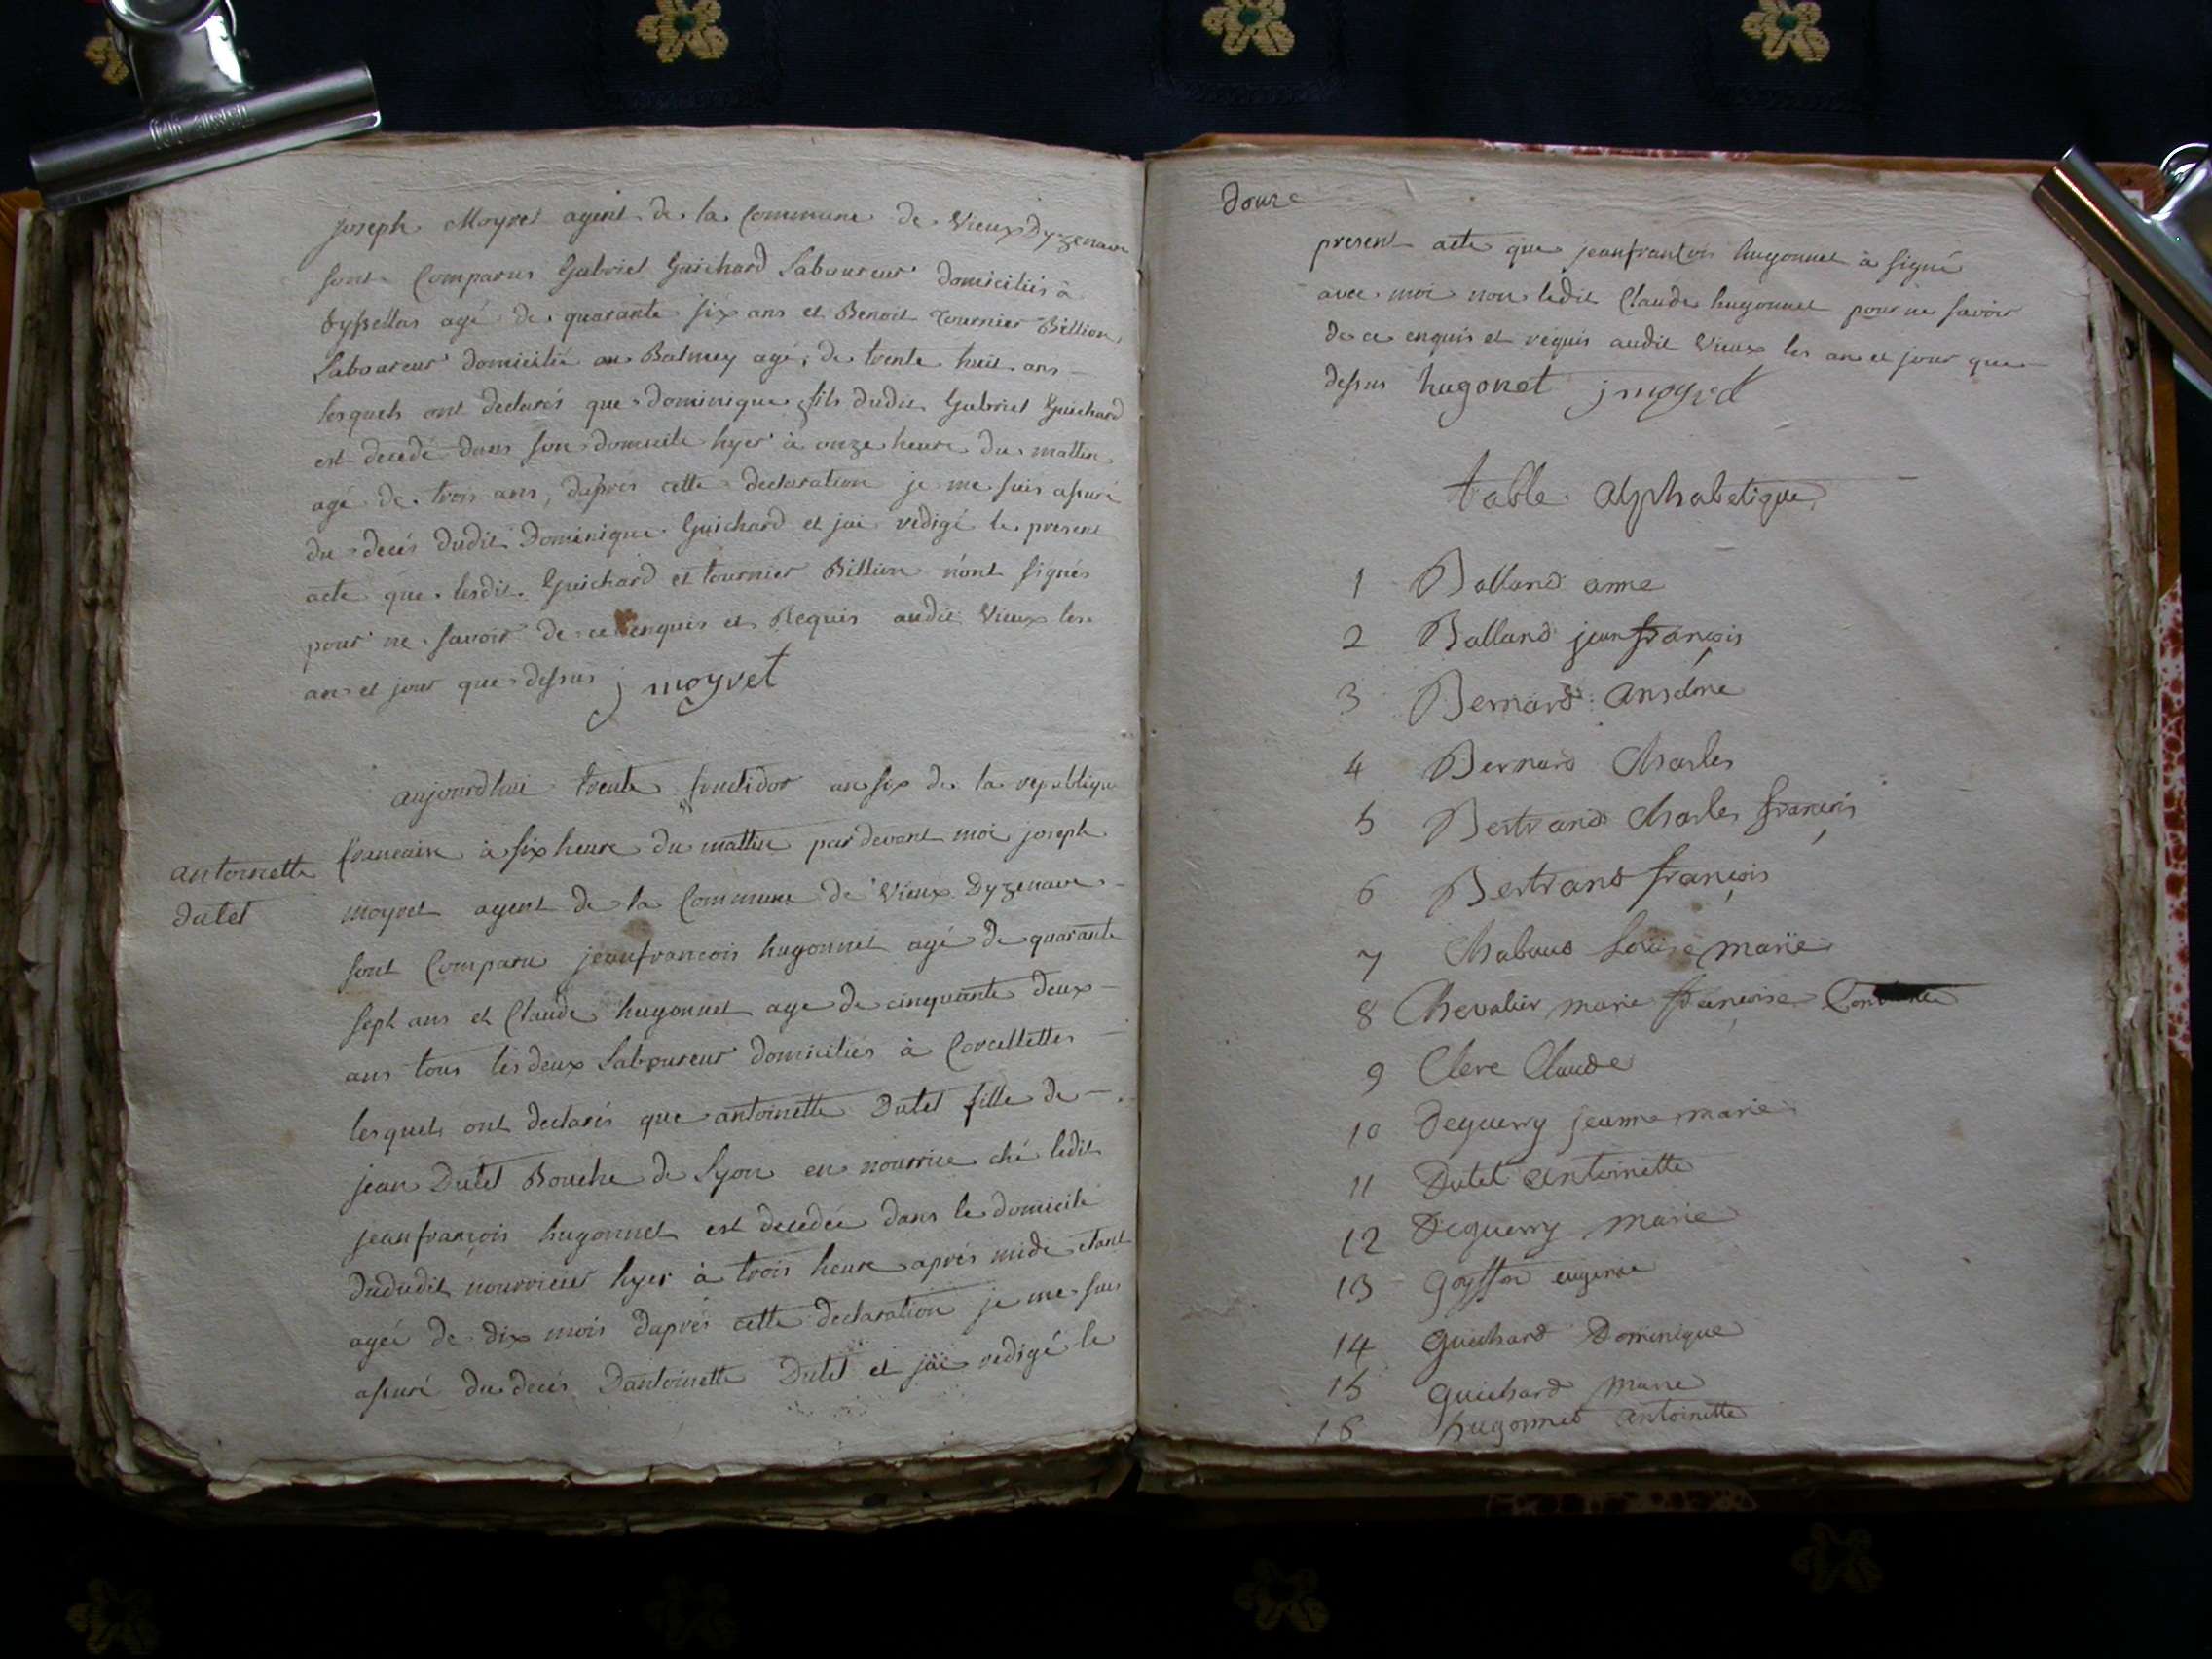 joseph Moyret agent de la Commune de Vieux Dyzenave
sont Comparus Gabriel Guichard Laboureur domiciliés à
agé de quarante six ans et Benoit tournier Billion,
Laboureur domicilié au Balmey agé, de trente huit ans
lesquels ont declarés que dominique fils dudit Gabriel Guichard
est decedé dans son domicile hyer à onze heure du mattin
agé de trois ans, daprés cette declaration je me suis assuré
du decés dudit Dominique Guichard et jai redigé le present
acte que lesdit Guichard et tournier Billion n'ont signés
pour ne savoir de ce enquis et Requis audit Vieux les
an et jour que dessus j moyret
aujourdhui trente fructidor an six de la republique
francaise à six heure du mattin par devant moi joseph
antoinette
dutel
moyret agent de la Commune de Vieux Dyzenave
sont Comparu jeanfrancois hugonnet agé de quarante
sept ans et Claude hugonnet age de cinquante deux
ans tous les deux Laboureur domiciliés à Corcellettes
lesquels ont declarés que antoinette Dutel fille de
jean Dutel Bouche de Lyon en nourrice ché ledit
jeanfrançois hugonnet est decedée dans le domicile
dududit nourricier hyer à trois heure aprés midi etant
agée de dix mois daprés cette declaration je me suis
assuré du decés Dantoinette Dutel et jai redigé le
douze
present acte que jeanfrançois hugonnet à signé
avec moi non ledit Claude hugonnet pour ne savoir
de ce enquis et requis audit Vieux les an et jour que
dessus hugonet j moyret
table alphabetique
1 Balland anne
2 Balland jean françois
3 Bernard anselme
4 Bernard Charles
5 Bertrand Charles françois
6 Bertrand françois
7 Chabaud Louise marie
8 Chevalier marie françoise
9 Clerc Claude
10 Deguerry jeanne marie
11 Dutel antoinette
12 Deguerry marie
13 goyffon eugenne
14 guichard Dominique
15 guichard marie
16 hugonnet antoinette